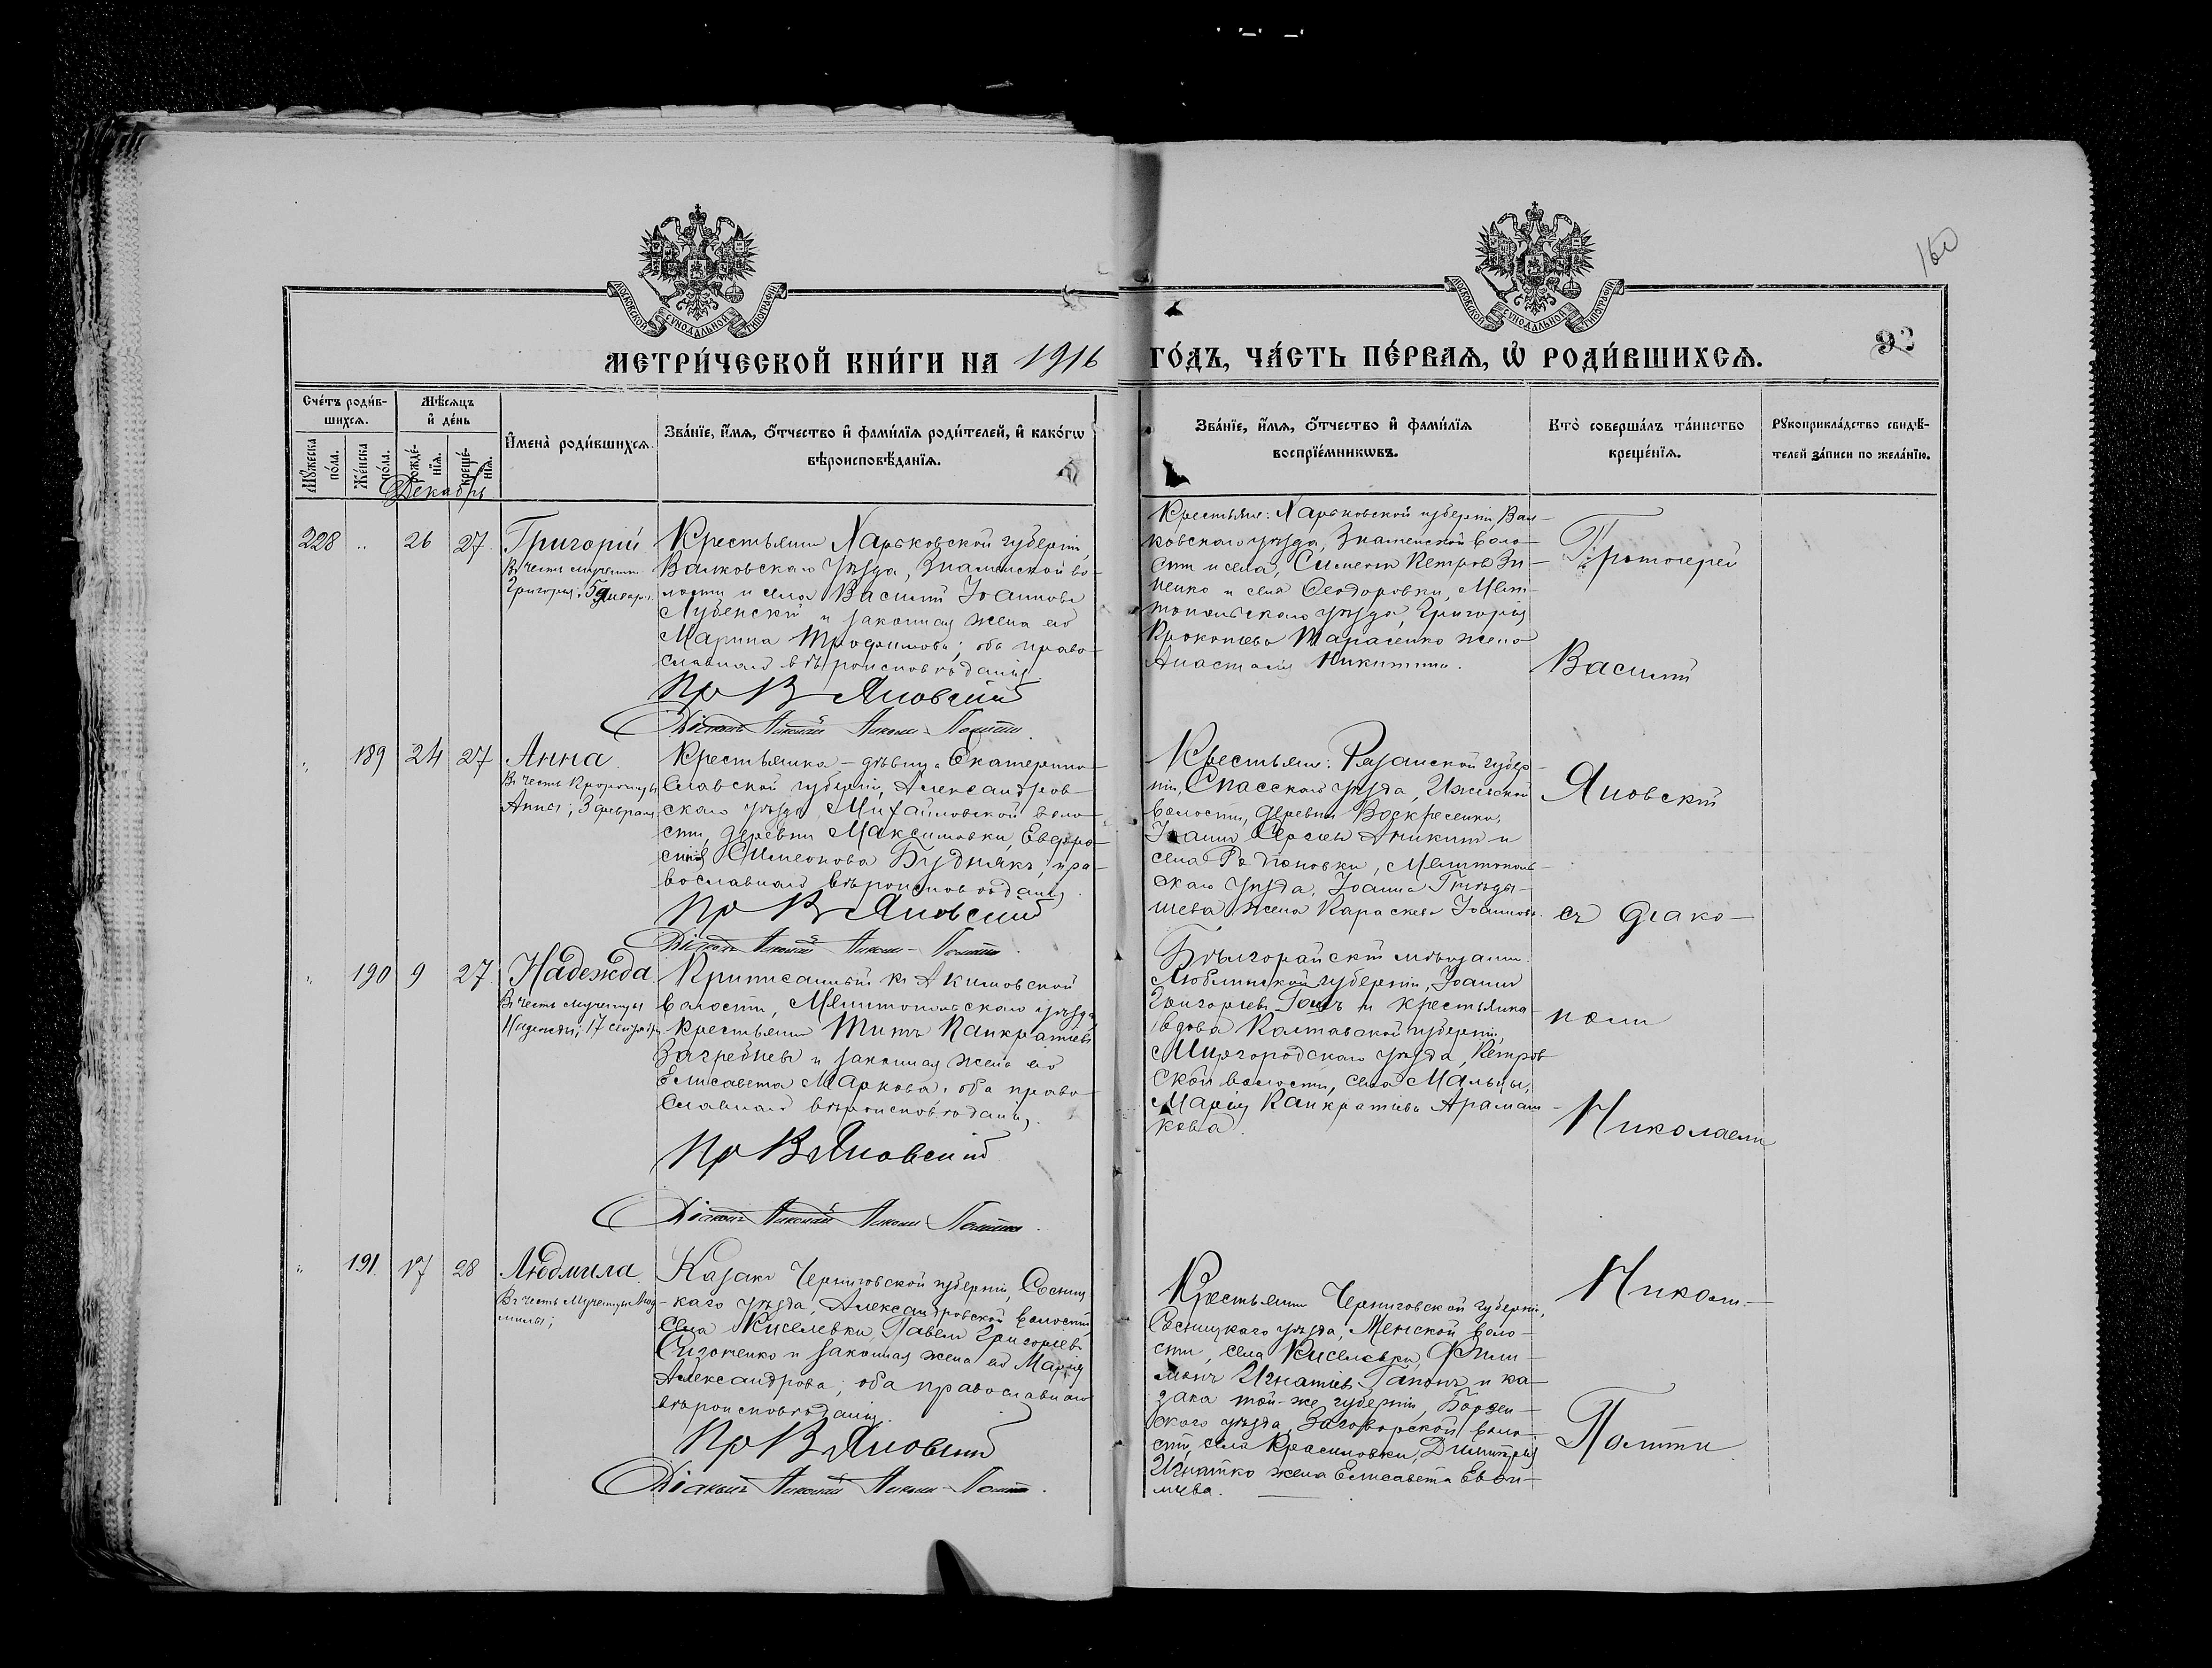 160
МОСКОВСКОЙ СѴНОДАЛЬНОЙ ТИПОГРАФІИ
МОСКОВСКОЙ СѴНОДАЛЬНОЙ ТИПОГРАФІИ
92
МЕТРИ́ЧЕСКОЙ КНИ́ГИ НА 1916 ГО́ДЪ, ЧА́СТЬ ПЕ́РВАѦ, Ѡ҆ РОДИ́ВШИХСѦ.
Сче́тъ роди́в-
шихсѧ.
Мꙋ́жеска
по́ла.
Же́нска
по́ла.
Мѣ́сѧцъ
и҆ де́нь
рожде́-
нїѧ.
креще́-
нїѧ.
И҆мена̀ роди́вшихсѧ.
Зва́нїе, и҆́мѧ, ѻ҆́тчество и҆ фами́лїѧ роди́телей, и҆ како́гѡ
вѣроисповѣ́данїѧ.
Зва́нїе, и҆́мѧ, ѻ҆́тчество и҆ фами́лїѧ
воспрїе́мникѡвъ.
Кто̀ соверша́лъ та́инство
креще́нїѧ.
Рꙋкоприкла́дство свидѣ́-
телей за́писи по жела́нїю.
Декабрь
228 " 26 27 Григорій
Въ честь мученика
Григорія,
Крестьянинъ Харьковской губерніи,
Валковскаго уѣзда, Знаменской во-
лости и села Василій Іоанновъ
Лубенскій и законная жена его
Марина Трофимова; оба право-
славнаго вѣроисповѣданія.
Пр В Яновскій
Діаконъ Николай Никол. Политти.
Крестьяне: Харьковской губерніи, Вал-
ковскаго уѣзда, Знаменской воло-
сти и села, Симеонъ Петровъ Зи-
ненко и села Ѳеодоровки, Мели-
топольскаго уѣзда, Григорія
Прокопіева Тарасенко жена
Анастасія Никитина.
" 189 24 27 Анна.
Въ честь Пророчицы
Анны; 3 февраля
Крестьянка - дѣвица Екатерино-
славской губерніи, Александров-
скаго уѣзда, Михайловской воло-
сти, деревни Максимовки, Евфро-
синія Симеонова Буднякъ; пра-
вославнаго вѣроисповѣданія.
Пр В Яновскій
Діаконъ Николай Никол. Политти.
Крестьяне: Рязанской губер-
ніи, Спасскаго уѣзда, Ижевской
волости, деревни Воскресенки,
Іоаннъ Сергіевъ Аникинъ и
села Родіоновки, Мелитополь-
скаго уѣзда, Іоанна
жена Параскева Іоаннова.
" 190 9 27 Надежда.
Въ честь мученицы
Надежды; 17 сентября
Приписанный къ Акимовской
волости, Мелитопольскаго уѣзда,
крестьянинъ Титъ Панкратіевъ
Загребневъ и законная жена его
Елисавета Маркова; оба право-
славнаго вѣроисповѣданія.
Пр В Яновскій
Діаконъ Николай Никол. Политти.
Бѣлгорайскій мѣщанинъ
Люблинской губерніи, Іоаннъ
Григорьевъ и крестьянка
вдова Полтавской губерніи,
Миргородскаго уѣзда, Петров-
ской волости, села Мальцы,
Марія Панкратіева
кова.
" 191. 17 28 Людмила.
Въ честь Мученицы Люд-
милы;
Казакъ Черниговской губерніи, Сосниц-
каго уѣзда, Александровской волости,
села Киселевки, Павелъ Григорьевъ
и законная жена его Марія
Александрова; оба православнаго
вѣроисповѣданія.
Пр В Яновскій
Діаконъ Николай Никол. Политти.
Крестьянинъ Черниговской губерніи,
Сосницкаго уѣзда, Менской воло-
сти, села Киселевки, Фили-
монъ Игнатіевъ Гапонъ и ка-
зака той-же губерніи, Борзен-
скаго уѣзда, воло-
сти, села Красиловки, Димитрія
Игнатко жена Елисавета Евфи-
міева.
Протоіерей
Василій
Яновскій
съ діако-
номъ
Николаемъ
Никол.-
Политти